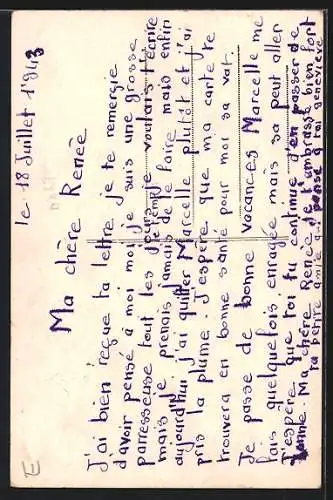 le 18 Juillet 1943
Ma chère Renée
J'ai bien reçue ta lettre, je te remergie
d'avoir pensé à moi moi je suis une grosse
parresseuse tout les jours je voulais t'écrire
mais le temps je prenais jamais de le faire mais enfin
aujourd'hui j'ai quitter Marcelle plutôt et j'ai
pris la plume. J'espère que ma carte te
trouvera en bonne santé pour moi sa vat.
Je passe de bonne vacances Marcelle me
fais quelquefois enragée mais sa peut aller
J'espère que toi tu continue d'en passer de
bonne. Ma chère Renée je t'embrasse bien fort
ta petite amie qui pense à toi geneviève
E